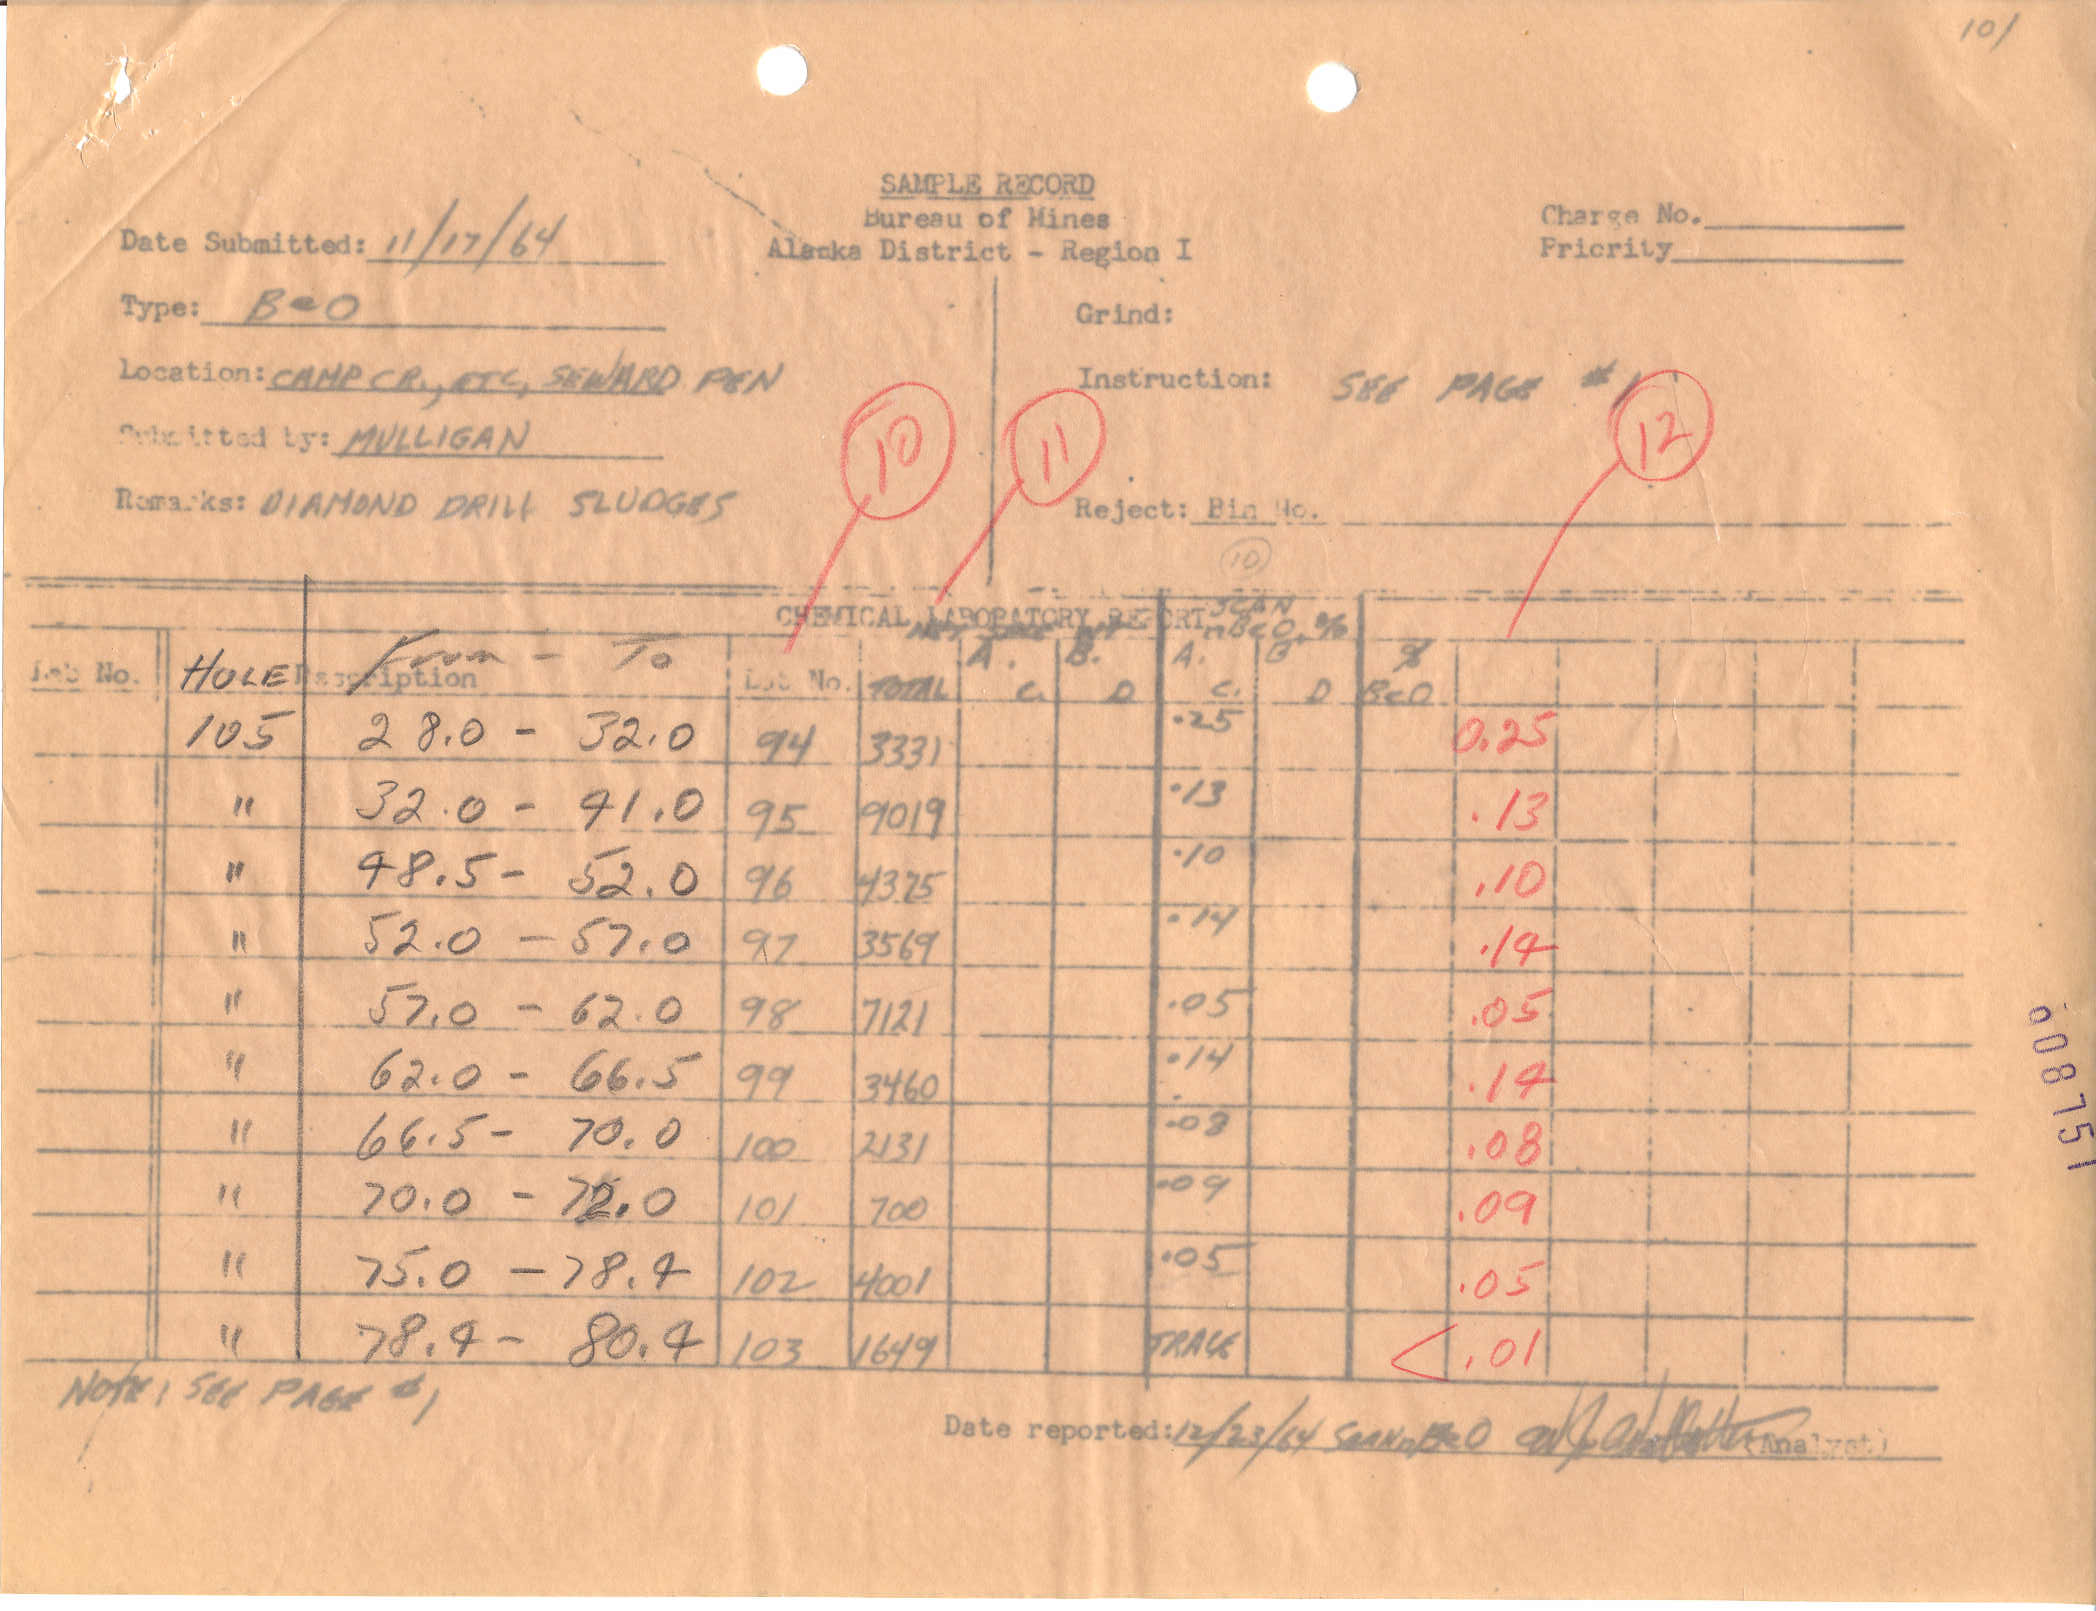 101
SAMPLE RECORD
Bureau of Mines
Alaska District - Region I
Charge No.
Priority
Date Submitted: 11/17/64
Type: BeO
Grind:
Location: CAMP CR., ETC, SEWARD PEN
Instruction: SEE PAGE #1
Submitted by: MULLIGAN
10 11 12
Remarks: DIAMOND DRILL SLUDGES
Reject: Bin No.
10
CHEMICAL LABORATORY REPORT
SCAN
BeO, %
Lab No. HOLE Description From - To Lab No. TOTAL A. C. B. D A. C. B D % BeO
105 28.0 - 32.0 94 3331 .25 0.25
" 32.0 - 41.0 95 9019 .13 .13
" 48.5 - 52.0 96 4375 .10 .10
" 52.0 - 57.0 97 3569 .14 .14
" 57.0 - 62.0 98 7121 .05 .05
" 62.0 - 66.5 99 3460 .14 .14
" 66.5 - 70.0 100 2131 .08 .08
" 70.0 - 72.0 101 700 .09 .09
" 75.0 - 78.4 102 4001 .05 .05
" 78.4 - 80.4 103 1649 TRACE < .01
NOTE; SEE PAGE #1
Date reported: 12/23/64 SCAN BeO (Analyst)